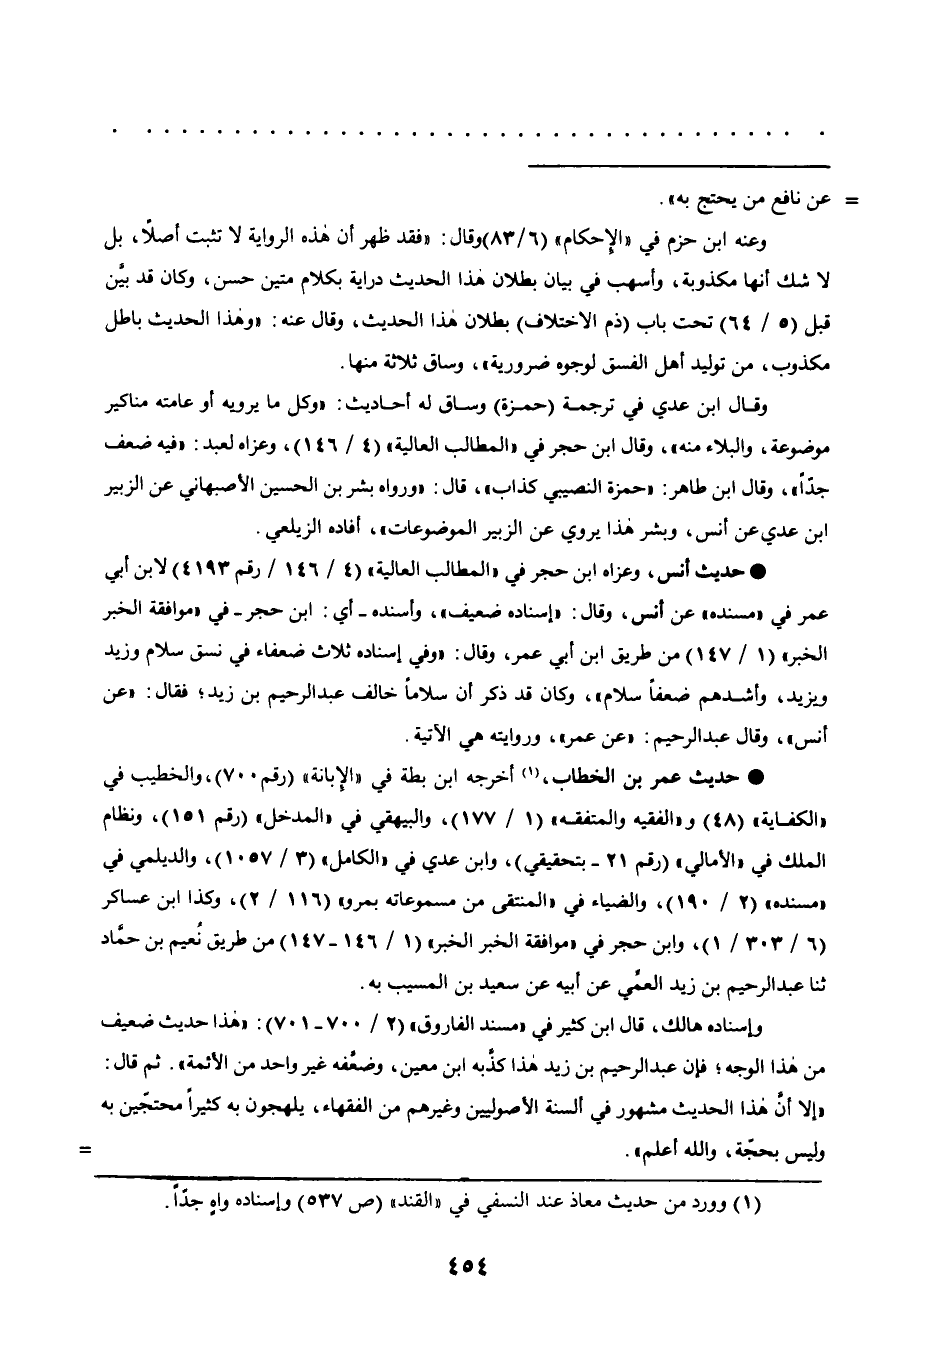 . . . . . . . . . . . . . . . . . . . . . . . . . . . . . . . . . . . . . . .
= عن نافع من يحتج به».
وعنه ابن حزم في «الإحكام» (٨٣/٦)وقال: «فقد ظهر أن هٰذه الرواية لا تثبت أصلاً، بل
لا شك أنها مكذوبة، وأسهب في بيان بطلان هٰذا الحديث دراية بكلام متين حسن، وكان قد بيَّن
قبل (٥ / ٦٤) تحت باب (ذم الاختلاف) بطلان هٰذا الحديث، وقال عنه: «وهٰذا الحديث باطل
مكذوب، من توليد أهل الفسق لوجوه ضرورية»، وساق ثلاثة منها.
وقال ابن عدي في ترجمة (حمزة) وساق له أحاديث: «وكل ما يرويه أو عامته مناكير
موضوعة، والبلاء منه»، وقال ابن حجر في «المطالب العالية» (٤ / ١٤٦)، وعزاه لعبد: «فيه ضعف
جدّاً»، وقال ابن طاهر: «حمزة النصيبي كذاب»، قال: «ورواه بشر بن الحسين الأصبهاني عن الزبير
ابن عدي عن أنس، وبشر هٰذا يروي عن الزبير الموضوعات»، أفاده الزيلعي.
● حديث أنس، وعزاه ابن حجر في «المطالب العالية» (٤ / ١٤٦ / رقم ٤١٩٣) لابن أبي
عمر في «مسنده» عن أنس، وقال: «إسناده ضعيف»، وأسنده ـ أي: ابن حجر ـ في «موافقة الخبر
الخبر» (١ / ١٤٧) من طريق ابن أبي عمر، وقال: «وفي إسناده ثلاث ضعفاء في نسق سلام وزيد
ويزيد، وأشدهم ضعفاً سلام»، وكان قد ذكر أن سلاماً خالف عبدالرحيم بن زيد؛ فقال: «عن
أنس»، وقال عبدالرحيم: «عن عمر»، وروايته هي الآتية.
● حديث عمر بن الخطاب،(١) أخرجه ابن بطة في «الإبانة» (رقم ٧٠٠)، والخطيب في
«الكفاية» (٤٨) و«الفقيه والمتفقه» (١ / ١٧٧)، والبيهقي في «المدخل» (رقم ١٥١)، ونظام
الملك في «الأمالي» (رقم ٢١ ـ بتحقيقي)، وابن عدي في «الكامل» (٣ / ١٠٥٧)، والديلمي في
«مسنده» (٢ / ١٩٠)، والضياء في «المنتقى من مسموعاته بمرو» (١١٦ / ٢)، وكذا ابن عساكر
(٦ / ٣٠٣ / ١)، وابن حجر في «موافقة الخبر الخبر» (١ / ١٤٦ ـ ١٤٧) من طريق نُعيم بن حمَّاد
ثنا عبدالرحيم بن زيد العمِّي عن أبيه عن سعيد بن المسيب به.
وإسناده هالك، قال ابن كثير في «مسند الفاروق» (٢ / ٧٠٠ ـ ٧٠١): «هٰذا حديث ضعيف
من هٰذا الوجه؛ فإن عبدالرحيم بن زيد هٰذا كذَّبه ابن معين، وضعَّفه غير واحد من الأئمة». ثم قال:
«إلا أنَّ هٰذا الحديث مشهور في ألسنة الأصوليين وغيرهم من الفقهاء، يلهجون به كثيراً محتجّين به
وليس بحجّة، والله أعلم». =
(١) وورد من حديث معاذ عند النسفي في «القند» (ص ٥٣٧) وإسناده واهٍ جدّاً.
٤٥٤